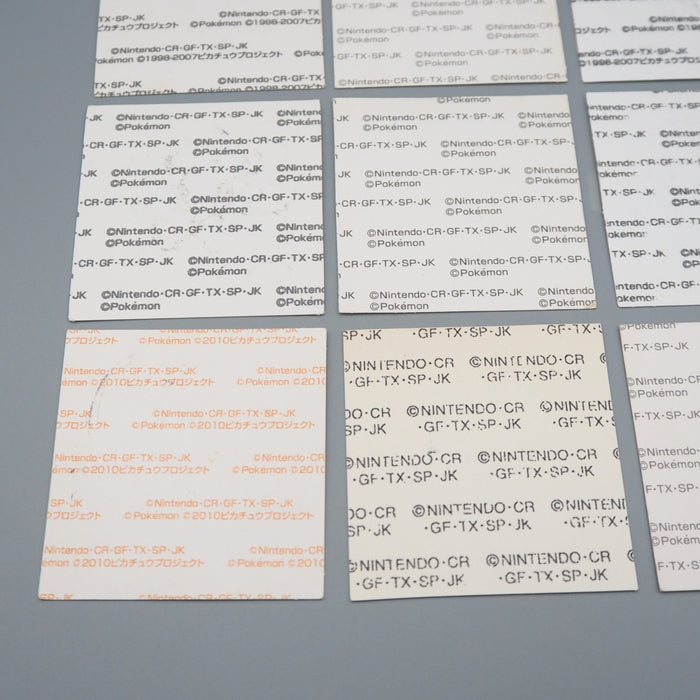 TX・SP・JK ©Nintendo・CR・GF・TX
ピカチュウプロジェクト ©Pokémon ©1998-2007ピカ
©Nintendo・CR・GF・TX・SP・JK
©Pokémon ©1998-2007ピカチュウプロジェクト ©Pok
TX・SP・JK ©Nintendo・CR・GF・TX
©Nintendo・CR・GF・TX・SP・JK
©Pokémon
GF・TX・SP・JK ©Nintendo・CR・GF・TX・SP・JK
©Pokémon
©Nintendo・CR・GF・TX・SP・JK ©Nintendo・CR
©Pokémon
©Nintendo
©1998-2007ピカチュウ
JK ©Nintendo・CR・GF・TX・SP・JK ©Ninten
©Pokémon ©Pokém
CR・GF・TX・SP・JK ©Nintendo・CR・GF・TX・SP
©Pokémon
JK ©Nintendo・CR・GF・TX・SP・JK ©Ninten
©Pokémon ©Pokém
CR・GF・TX・SP・JK ©Nintendo・CR・GF・TX・SP
©Pokémon
JK ©Nintendo・CR・GF・TX・SP・JK ©Ninten
©Pokémon ©Pokém
CR・GF・TX・SP・JK ©Nintendo・CR・GF・TX・SP
©Pokémon
JK ©Nintendo・CR・GF・TX・SP・JK ©Ninten
©Pokémon ©Pokém
©Pokémon
JK ©Nintendo・CR・GF・TX・SP・JK ©Nintendo
©Pokémon ©Pokémon
CR・GF・TX・SP・JK ©Nintendo・CR・GF・TX・SP
©Pokémon
JK ©Nintendo・CR・GF・TX・SP・JK ©Nintendo
©Pokémon ©Pokémon
CR・GF・TX・SP・JK ©Nintendo・CR・GF・TX・SP
©Pokémon
JK ©Nintendo・CR・GF・TX・SP・JK ©Nintendo
©Pokémon ©Pokémon
CR・GF・TX・SP・JK ©Nintendo・CR・GF・TX・SP
©Pokémon
JK ©Nintendo・CR・GF・TX・SP・JK ©Nintendo
©Pokémon ©Pokémon
ntendo・CR・GF・TX・SP
okémon
TX・SP・JK ©Ninten
©Pokém
ntendo・CR・GF・TX・SP
okémon
TX・SP・JK ©Nin
©Pok
ntendo・CR・GF・TX・S
okémon
TX・SP・JK ©N
©P
ntendo・CR・GF・TX
okémon
SP・JK ©Nintendo・CR・GF・TX・SP・JK
プロジェクト ©Pokémon ©2010ピカチュウプロジェクト
Nintendo・CR・GF・TX・SP・JK ©Nintendo・CR
émon ©2010ピカチュウプロジェクト ©Pokémon ©2010
SP・JK ©Nintendo・CR・GF・TX・SP・JK
プロジェクト ©Pokémon ©2010ピカチュウプロジェクト
Nintendo・CR・GF・TX・SP・JK ©Nintendo・CR
émon ©2010ピカチュウプロジェクト ©Pokémon ©2010
SP・JK ©Nintendo・CR・GF・TX・SP・JK
プロジェクト ©Pokémon ©2010ピカチュウプロジェクト
Nintendo・CR・GF・TX・SP・JK ©Nintendo・CR
émon ©2010ピカチュウプロジェクト ©Pokémon ©2010
SP・JK ・GF・TX・SP・JK ・GF・TX・
©NINTENDO・CR ©NINTENDO・CR ©
・GF・TX・SP・JK ・GF・TX・SP・JK
DO・CR ©NINTENDO・CR ©NINTEND
SP・JK ・GF・TX・SP・JK ・GF・TX・S
©NINTENDO・CR ©NINTENDO・CR ©
・GF・TX・SP・JK ・GF・TX・SP・JK
DO・CR ©NINTENDO・CR ©NINTEND
SP・JK ・GF・TX・SP・JK ・GF・TX・S
©NINTENDO・CR ©NINTENDO・CR ©
・GF・TX・SP・JK ・GF・TX・SP・JK
©Pokémon
F・TX・SP・JK
©Nintendo・
©Pokémon
F・TX・SP・JK
©Nintendo
©Pokémon
F・TX・SP・JK
©Nintendo
©Pokémon
F・TX・SP・JK